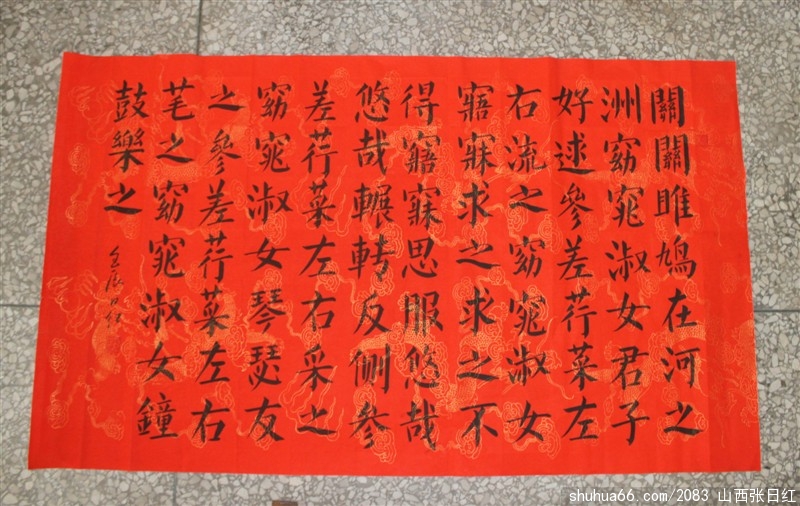 關關雎鳩在河之
洲窈窕淑女君子
好逑參差荇菜左
右流之窈窕淑女
寤寐求之求之不
得寤寐思服悠哉
悠哉輾轉反側參
差荇菜左右采之
窈窕淑女琴瑟友
之參差荇菜左右
芼之窈窕淑女鐘
鼓樂之
张日红
shuhua66.com/2083 山西张日红